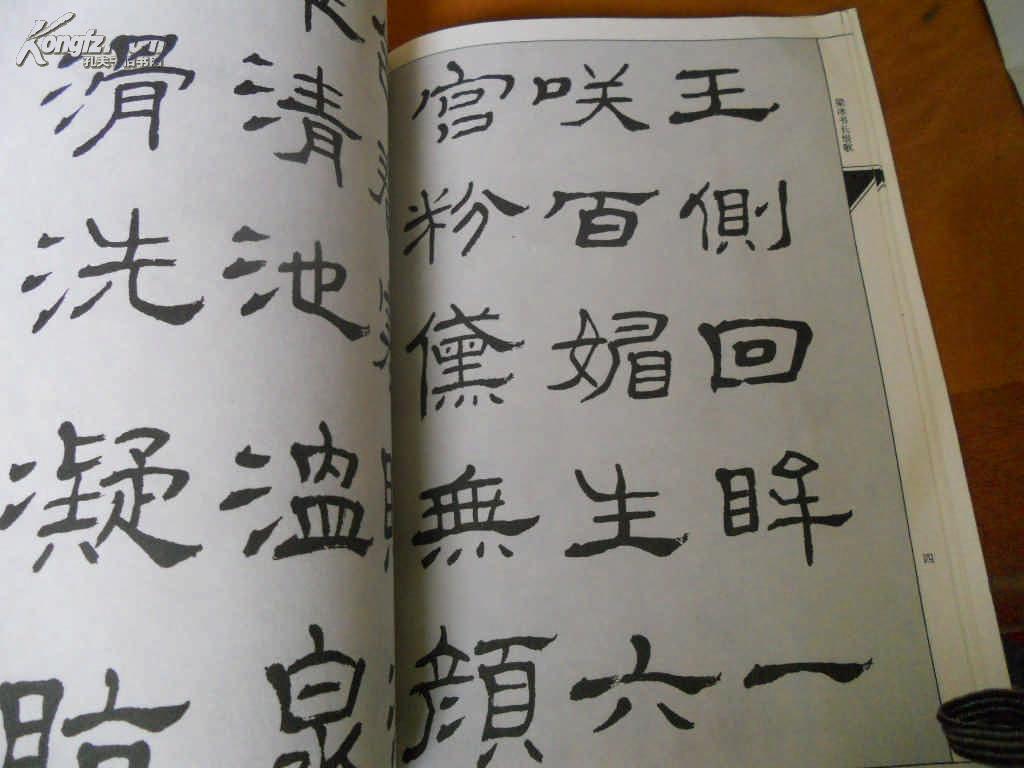 王側回眸一
咲百媚生六
宮粉黛無顔
清池溫泉
滑洗凝脂
书长恨歌
四
孔夫子旧书网